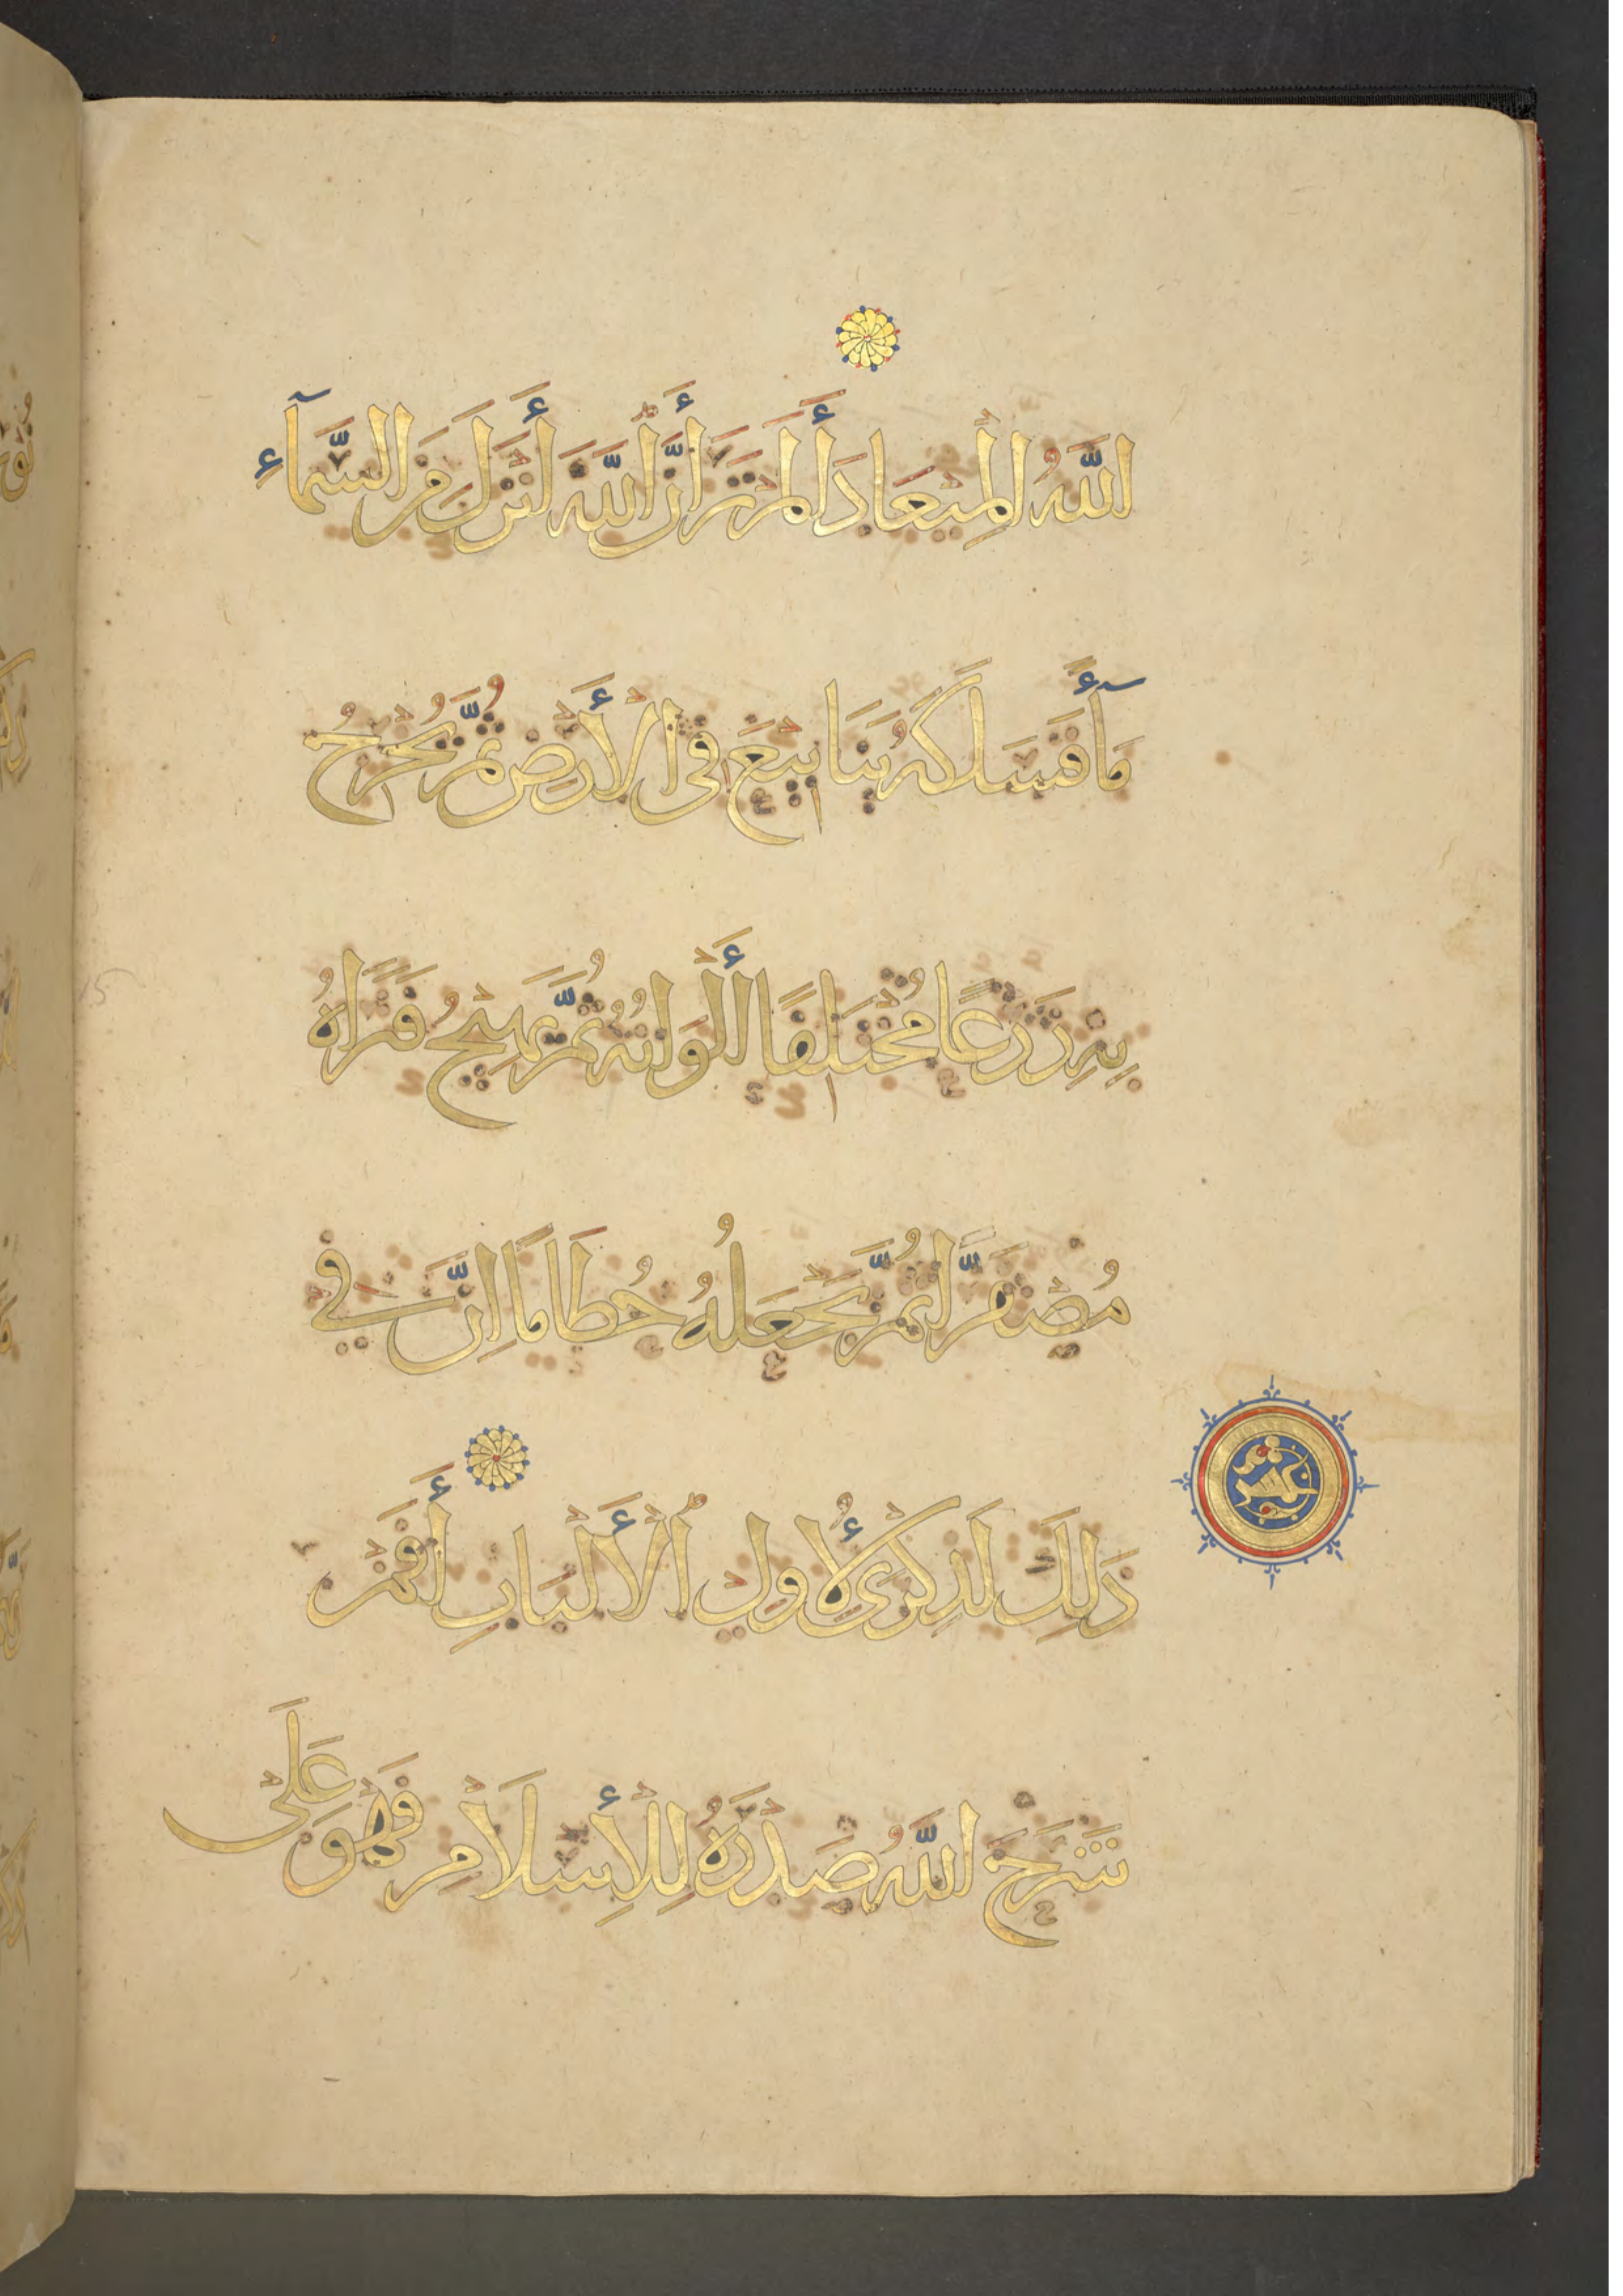 اللَّهُ الْمِيعَادَ أَلَمْ تَرَ أَنَّ اللَّهَ أَنْزَلَ مِنَ السَّمَآءِ
مَآءً فَسَلَكَهُ يَنَابِيعَ فِي الْأَرْضِ ثُمَّ يُخْرِجُ
بِهِ زَرْعًا مُخْتَلِفًا أَلْوَانُهُ ثُمَّ يَهِيجُ فَتَرَاهُ
مُصْفَرًّا ثُمَّ يَجْعَلُهُ حُطَامًا إِنَّ فِي
ذَلِكَ لَذِكْرَى لِأُولِي الْأَلْبَابِ أَفَمَنْ
شَرَحَ اللَّهُ صَدْرَهُ لِلْإِسْلَامِ فَهُوَ عَلَى